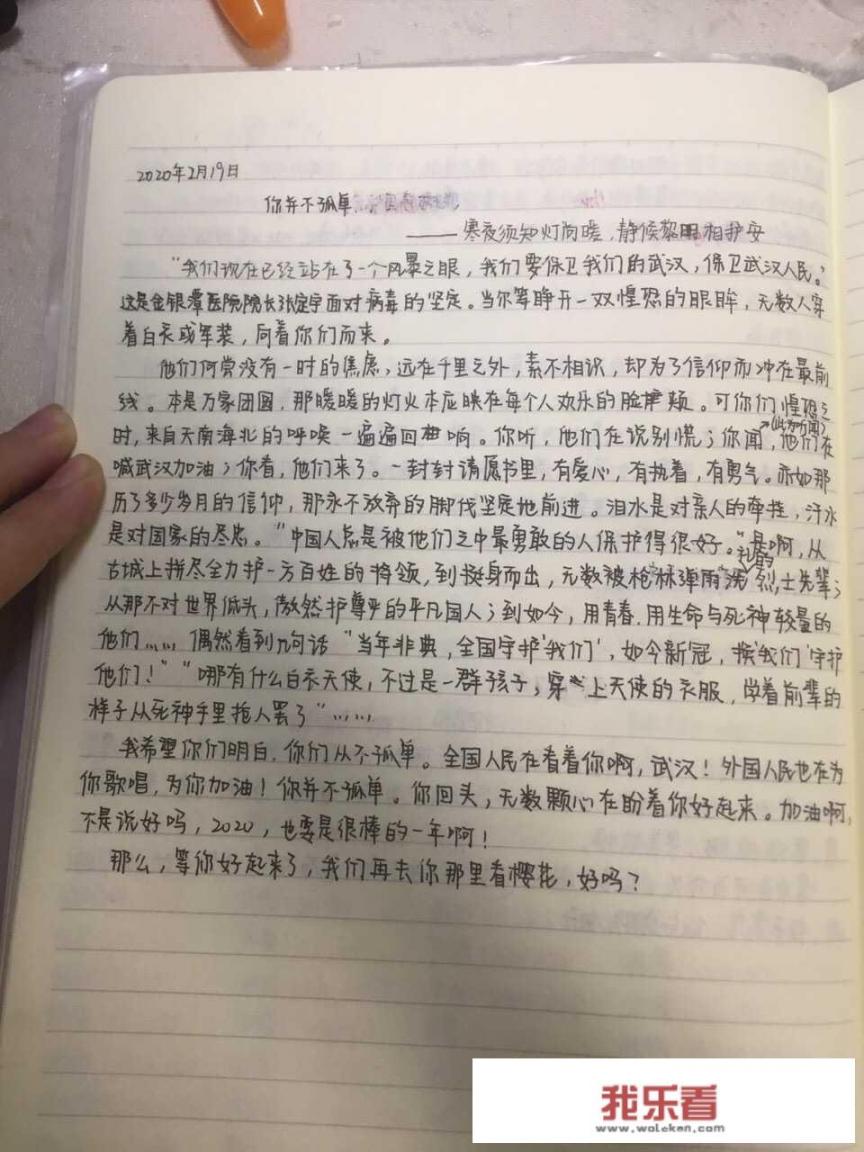 2020年2月19日
你并不孤单
——寒夜须知灯尚暖,静候黎明相护安
“我们现在已经站在了一个风暴之眼,我们要保卫我们的武汉,保卫武汉人民。”
这是金银潭医院院长张定宇面对病毒的坚定。当尔等睁开一双惶恐的眼眸,无数人穿
着白衣或军装,向着你们而来。
他们何尝没有一时的焦虑,远在千里之外,素不相识,却为了信仰而冲在最前
线。本是万家团圆,那暖暖的灯火本应映在每个人欢乐的脸颊。可你们惶恐之
时,来自天南海北的呼唤一遍遍回响。你听,他们在说别慌;你闻,他们在
(此为闻)
喊武汉加油;你看,他们来了。一封封请愿书里,有爱心,有执着,有勇气。亦如那
历了多少岁月的信仰,那永不放弃的脚伐坚定地前进。泪水是对亲人的牵挂,汗水
是对国家的尽忠。“中国人总是被他们之中最勇敢的人保护得很好。”是啊,从
古城上拼尽全力护一方百姓的将领,到挺身而出,无数被枪林弹雨洗礼的烈士先辈;
从那不对世界低头,傲然护尊严的平凡国人;到如今,用青春、用生命与死神较量的
他们…… 偶然看到几句话“当年非典,全国守护‘我们’,如今新冠,换‘我们’守护
他们!”“哪有什么白衣天使,不过是一群孩子,穿上天使的衣服,学着前辈的
样子从死神手里抢人罢了”……
我希望你们明白,你们从不孤单。全国人民在看着你啊,武汉!外国人民也在为
你歌唱,为你加油!你并不孤单。你回头,无数颗心在盼着你好起来。加油啊,
不是说好吗,2020,也要是很棒的一年啊!
那么,等你好起来了,我们再去你那里看樱花,好吗?
我乐看
www.woleken.com